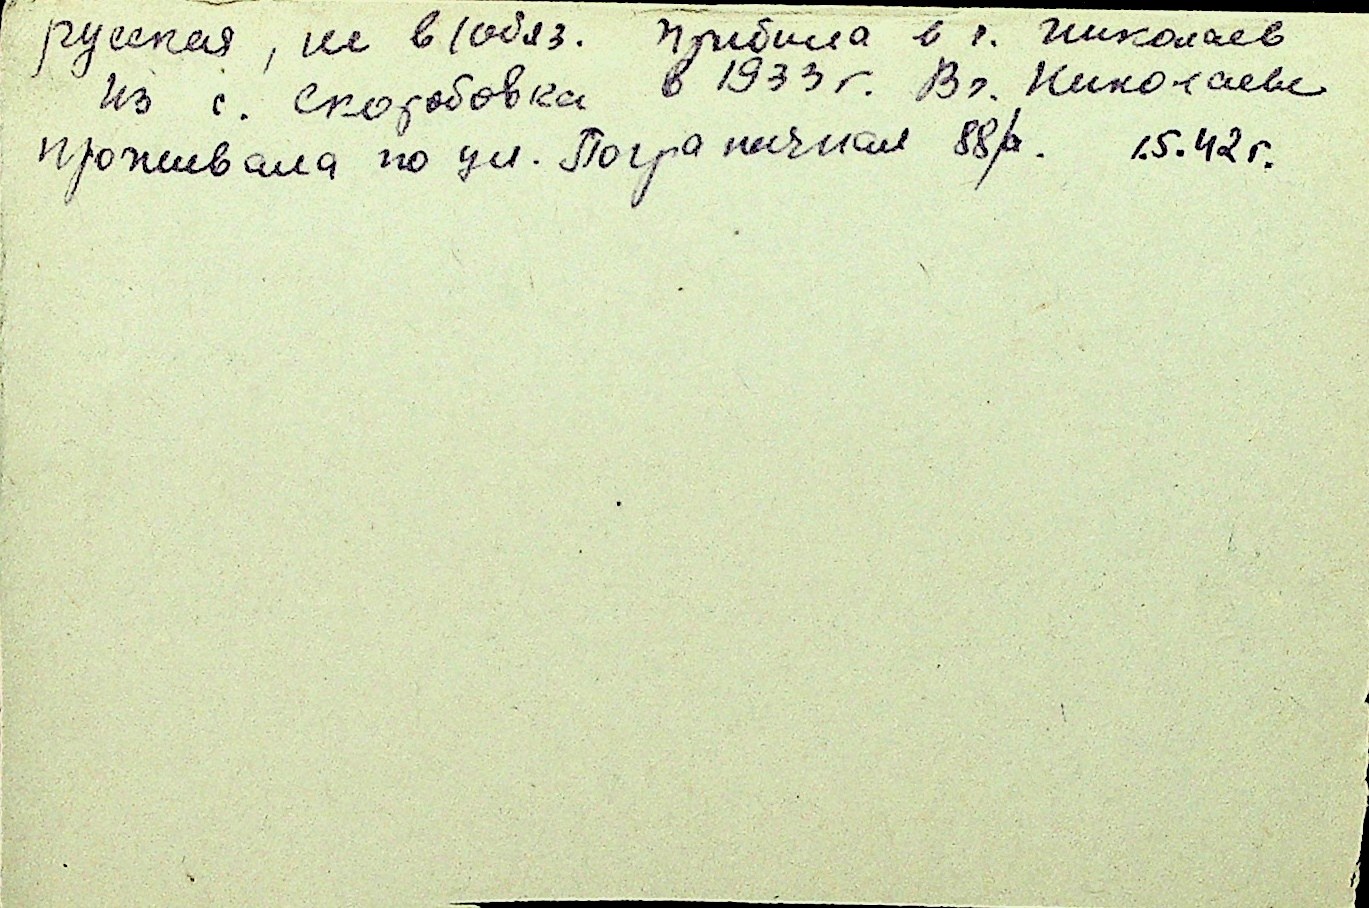 русская, не в/обяз. Прибыла в г. Николаев
Из с. Скоробовка в 1933 г. В г. Николаеве
проживала по ул. Пограничная 88/а. 1.5.42 г.